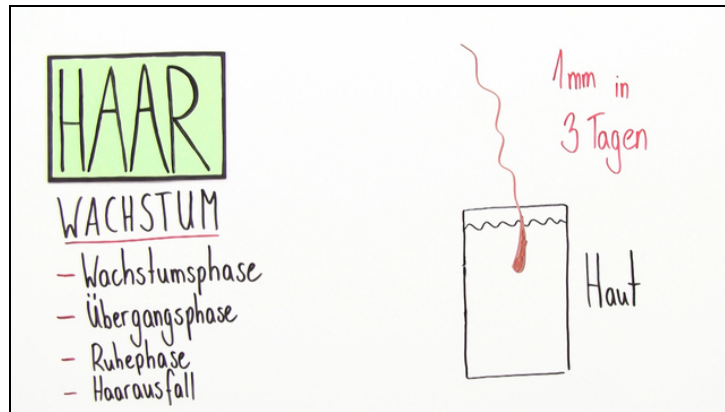 HAAR
WACHSTUM
- Wachstumsphase
- Übergangsphase
- Ruhephase
- Haarausfall
1mm in
3 Tagen
Haut